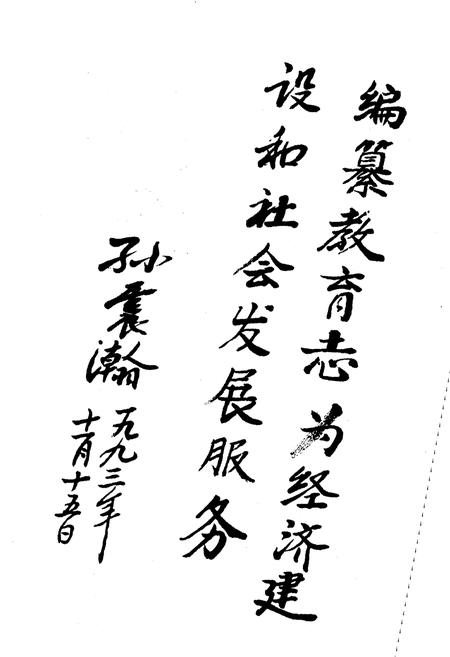 编纂教育志为经济建
设和社会发展服务
孙震瀚
一九九三年
十一月十五日